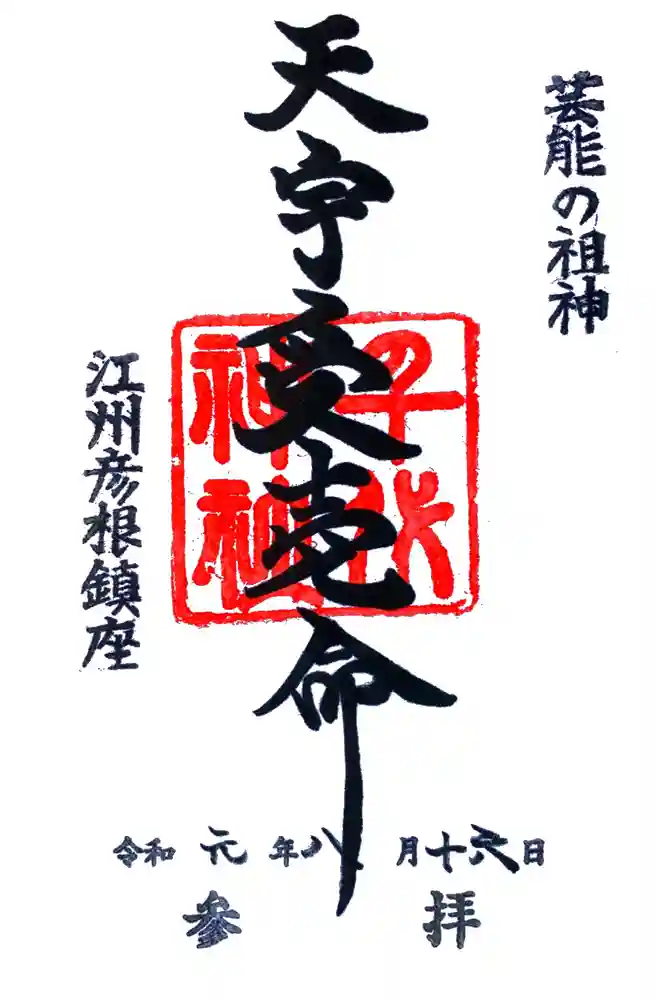 芸能の祖神
天宇受売命
千代神社
江州彦根鎮座
令和元年八月十六日
参拝